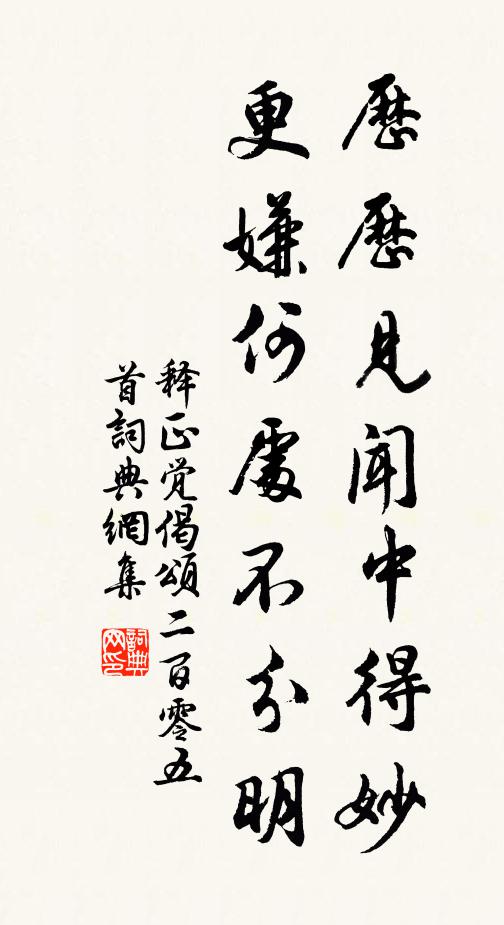 歷歷見聞中得妙
更嫌何處不分明
释正觉偈頌二百零五
首詞典網集
詞典
网印